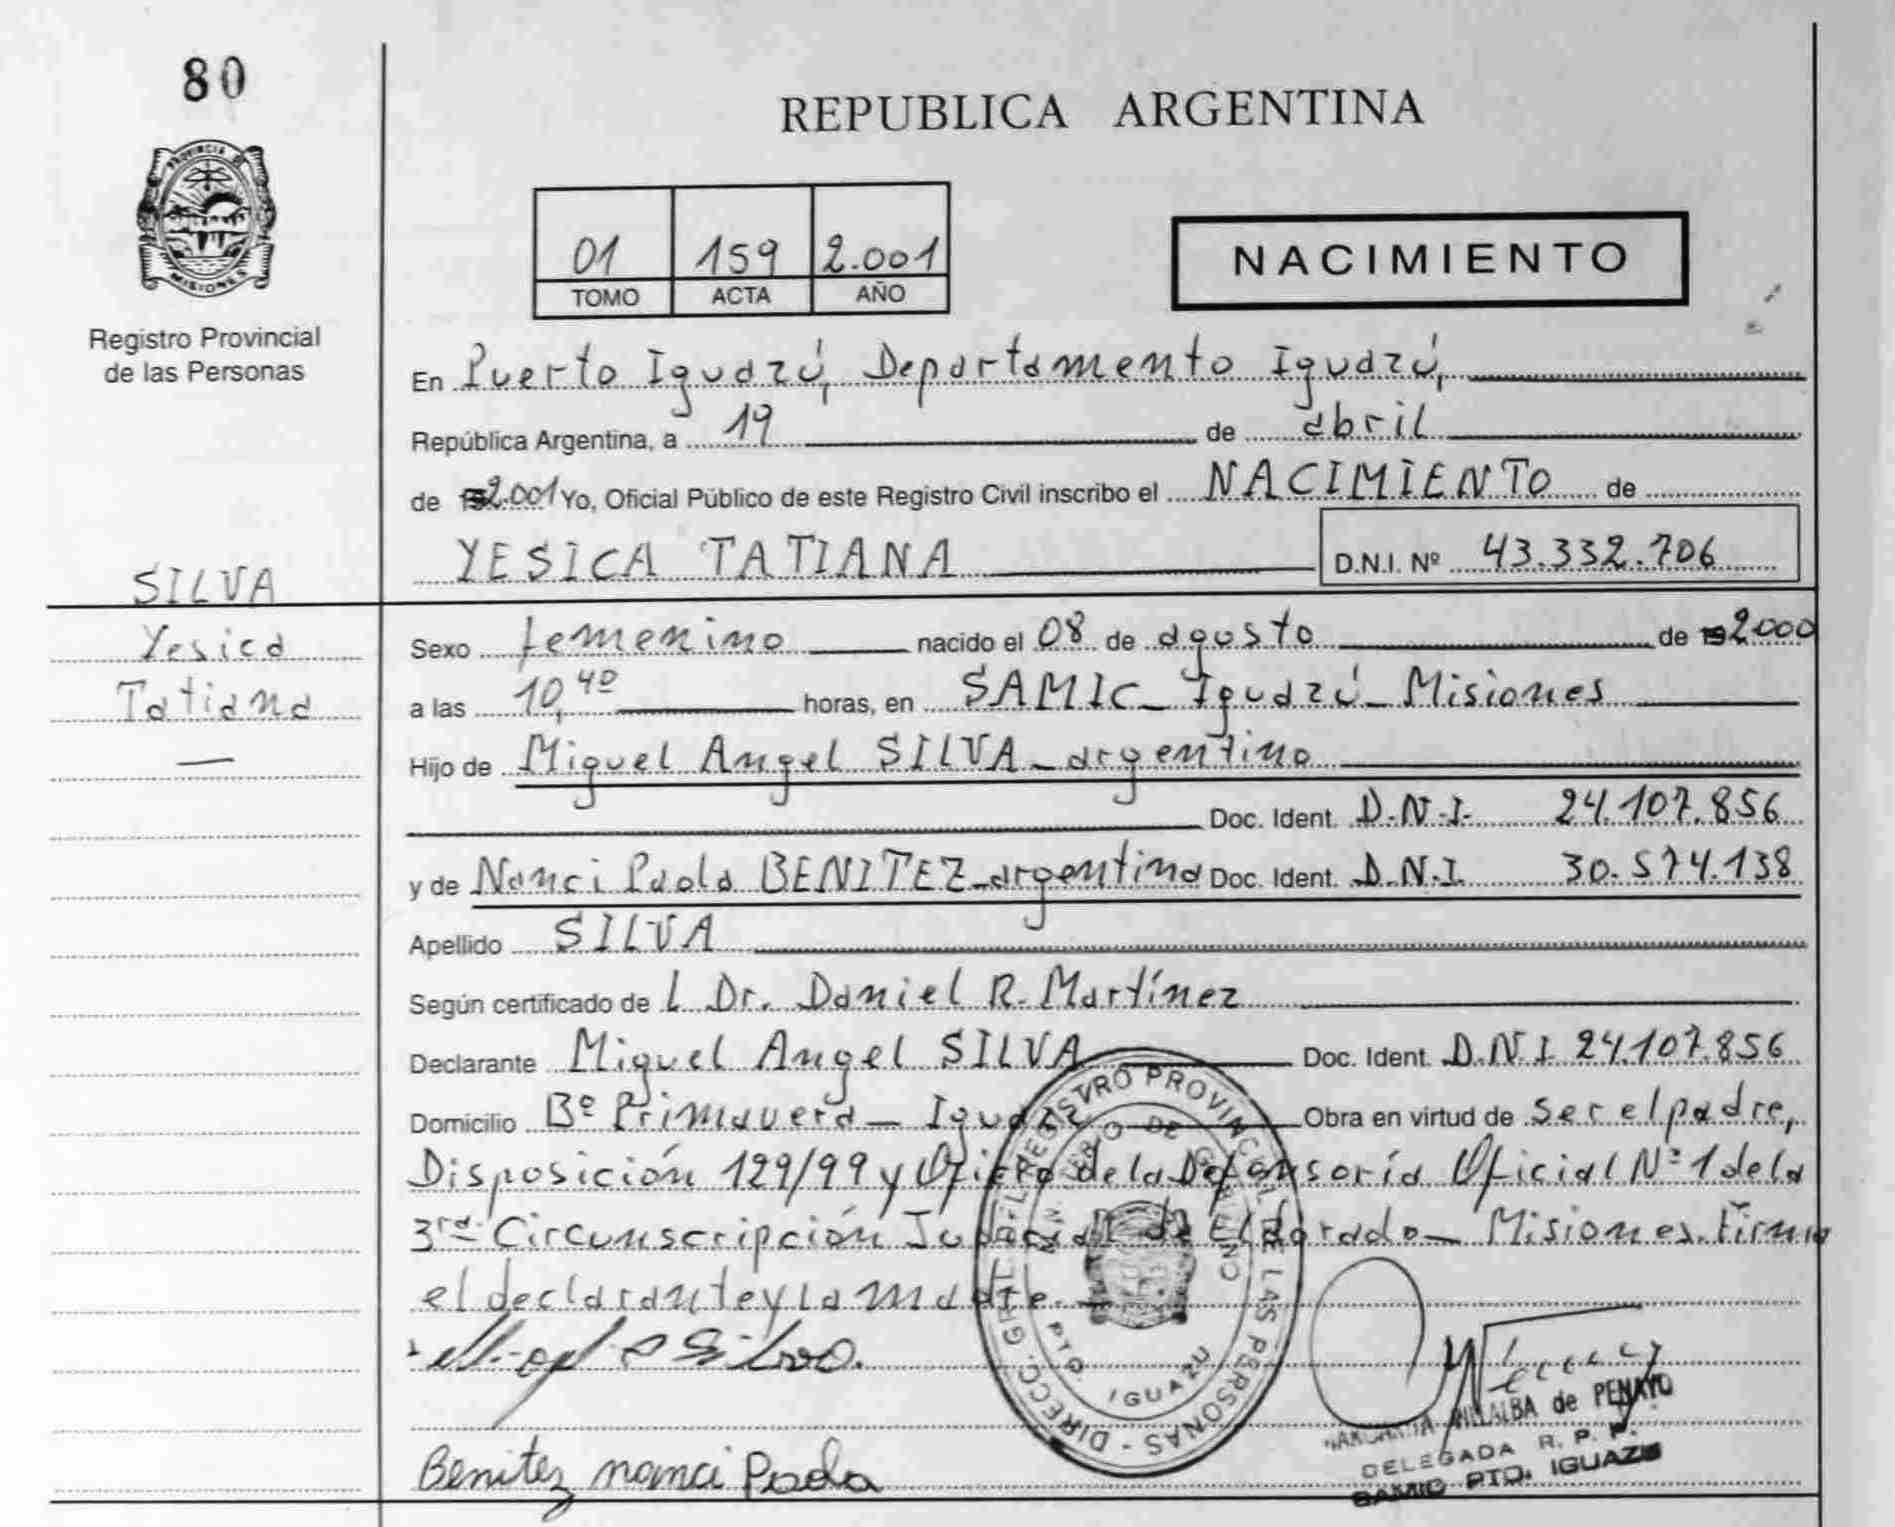 80
PROVINCIA DE
MISIONES
Registro Provincial
de las Personas
REPUBLICA ARGENTINA
01 159 2.001
TOMO ACTA AÑO
NACIMIENTO
En Puerto Iguazú, Departamento Iguazú,
República Argentina, a 19 de abril
de 2.001 Yo, Oficial Público de este Registro Civil inscribo el NACIMIENTO de
YESICA TATIANA D.N.I. Nº 43.332.706
SILVA
Yesica
Tatiana
—
Sexo femenino nacido el 08 de agosto de 192000
a las 10,40 horas, en SAMIC_ Iguazú_ Misiones
Hijo de Miguel Angel SILVA_argentino
Doc. Ident. D.N.I. 24.107.856
y de Nanci Paola BENITEZ_argentina Doc. Ident. D.N.I 30.574.138
Apellido SILVA
Según certificado de L Dr. Daniel R. Martínez
Declarante Miguel Angel SILVA Doc. Ident. D.N.I 24.107.856
Domicilio Bº Primavera_ Iguazú Obra en virtud de ser el padre,
Disposición 129/99 y Oficio de la Defensoría Oficial Nº 1 de la
3ra Circunscripción Judicial de Eldorado_ Misiones. Firma
el declarante y la madre.
Silva.
Benitez nanci Paola
DIRECC. GRAL. DEL REGISTRO PROVINCIAL DE LAS PERSONAS
MINISTERIO DE GOBIERNO
PTO. IGUAZU
MARGARITA VILLALBA de PENAYO
DELEGADA R. P. P.
SAMIC PTO. IGUAZU